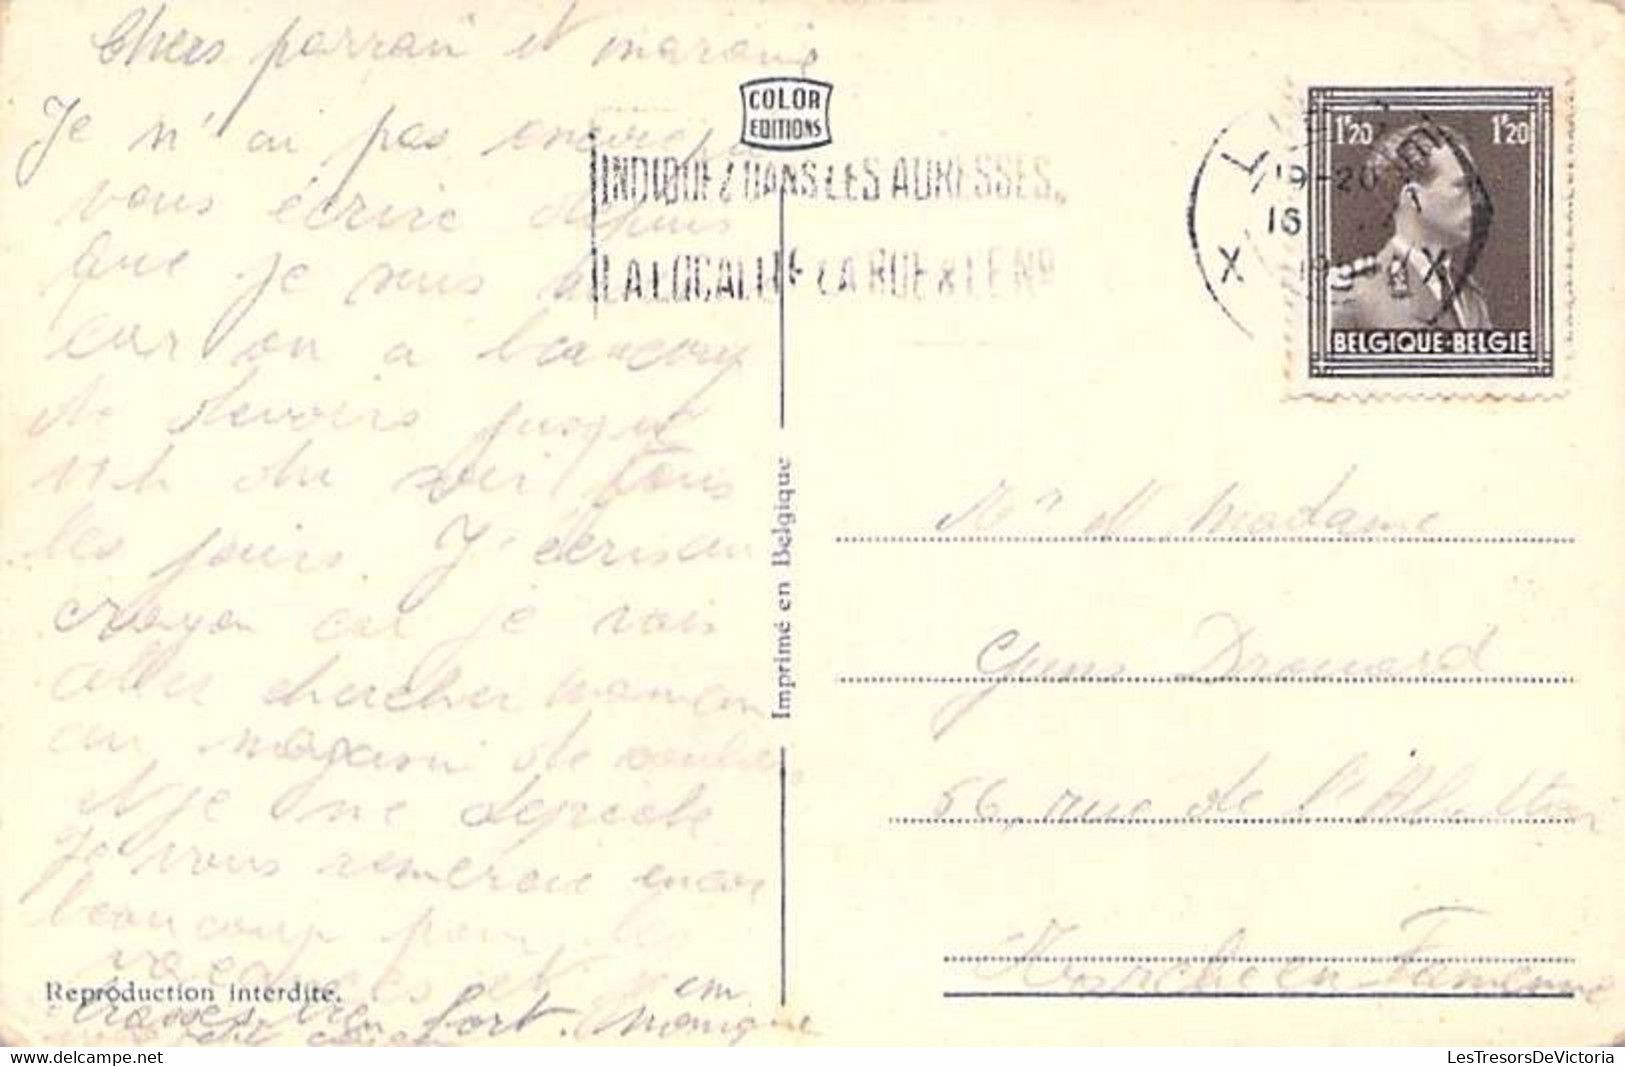 Chers parrain et maraine
Je n'ai pas encore pu
vous écrire depuis
que je suis
car on a beaucoup
de devoirs jusqu'à
11 h du soir tous
les jours. J'écris au
crayon car je vais
aller chercher maman
au magasin de
et je me depeche
Je vous remercie encor
beaucoup pour les
vacances et
bien fort. Monique
COLOR
EDITIONS
INDIQUEZ DANS LES ADRESSES
LA LOCALITE LA RUE & LE No
19-20
16
X X
1F20 1F20
BELGIQUE-BELGIE
Imprimé en Belgique
Mr et Madame
Gyens Drouard
56, rue de l'
Marche en Famenne
Reproduction interdite.
ww.delcampe.net
LesTresorsDeVictoria